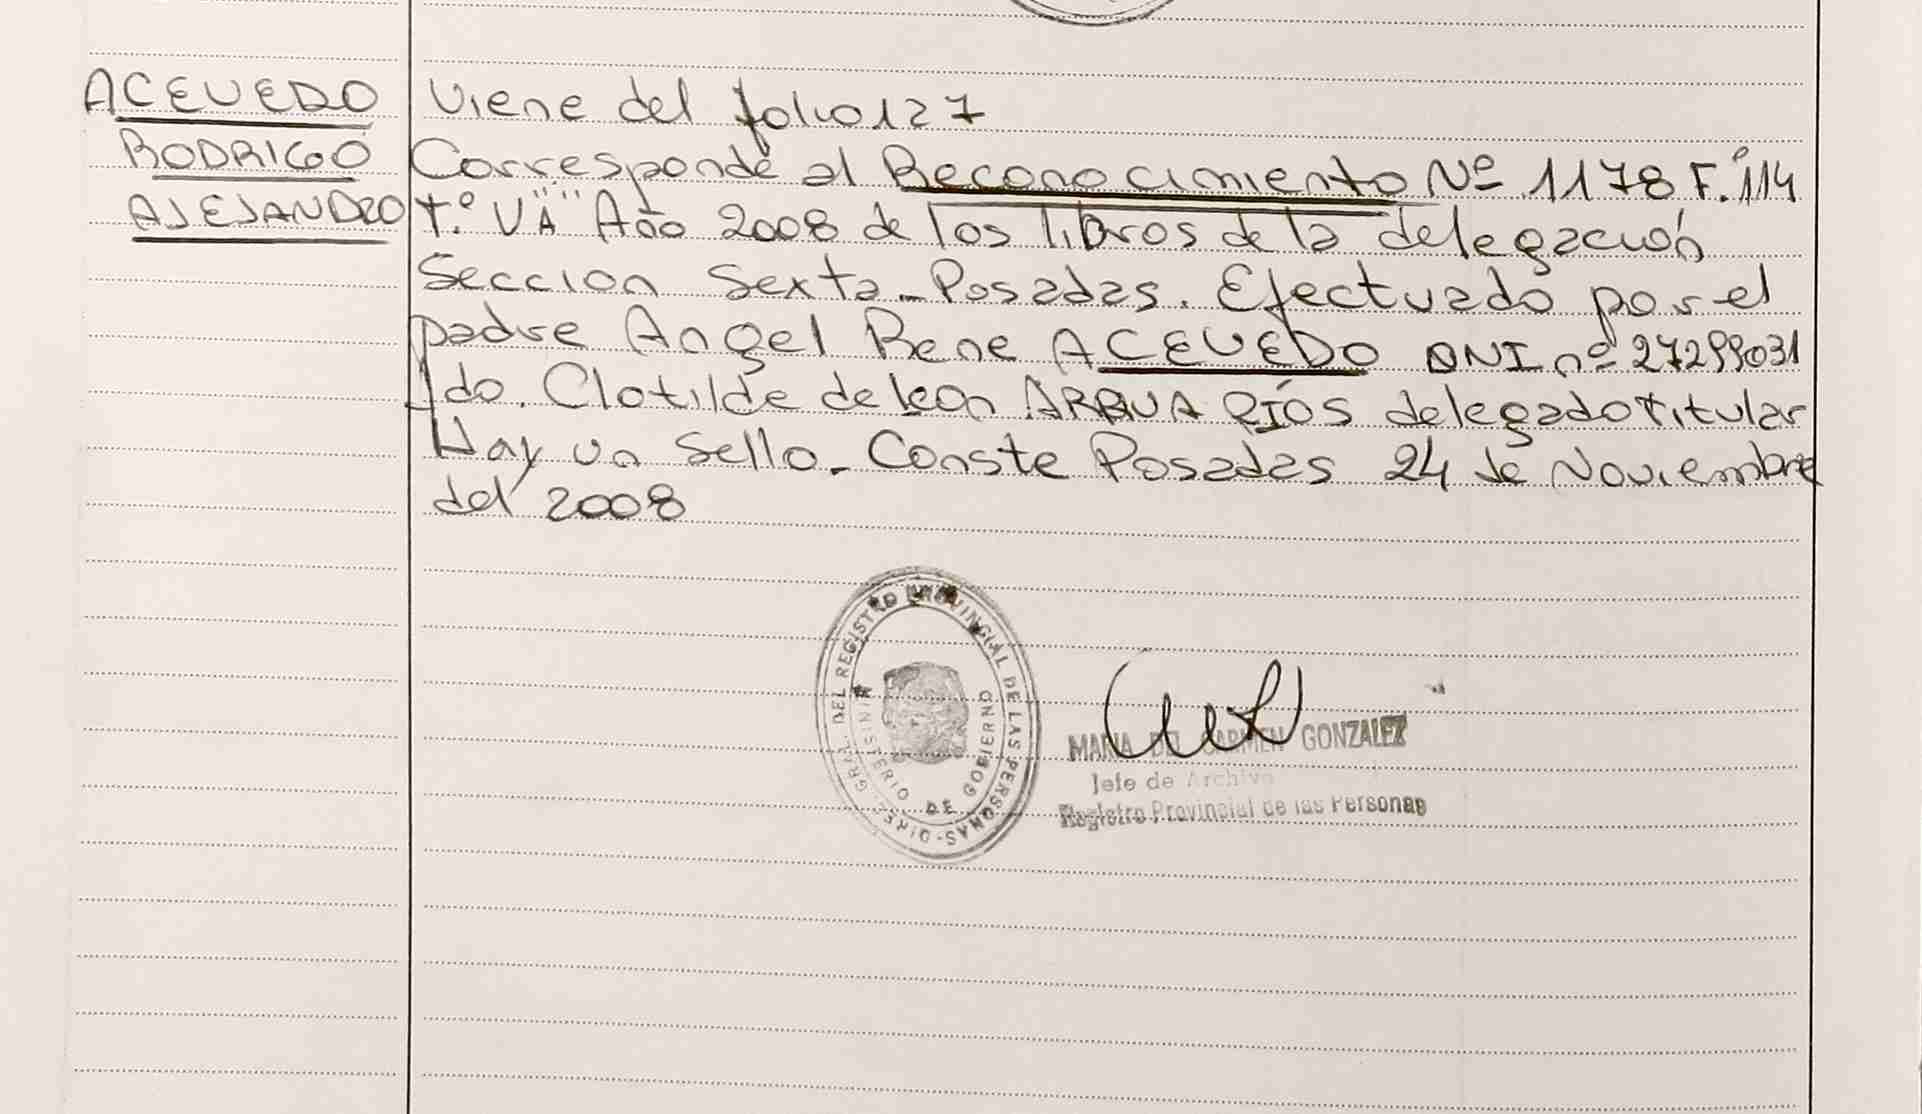 ACEVEDO
RODRIGO
ALEJANDRO
Viene del folio 127
Corresponde al Reconocimiento Nº 1178 F.º 114
T.º V "A" Año 2008 de los libros de la delegación
Seccion Sexta - Posadas. Efectuado por el
padre Angel Rene ACEVEDO DNI nº 27299031
fdo. Clotilde de leon ARRUA RÍOS delegado titular
Hay un Sello - Conste Posadas 24 de Noviembre
del 2008
DIREC. GRAL. DEL REGISTRO PROVINCIAL DE LAS PERSONAS -
MINISTERIO DE GOBIERNO
MARIA DEL CARMEN GONZALEZ
Jefe de Archivo
Registro Provincial de las Personas